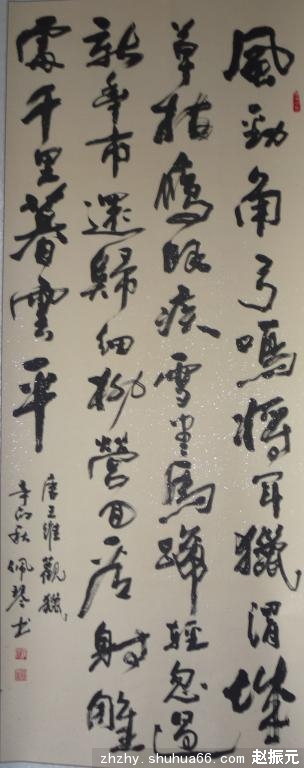 風勁角弓鳴將军獵渭城
草枯鷹眼疾雪盡馬蹄輕忽過
新豐市還歸細柳營回看射雕
處千里暮雲平
唐王維觀獵
辛卯秋佩琴书
zhzhy.shuhua66.com 赵振元